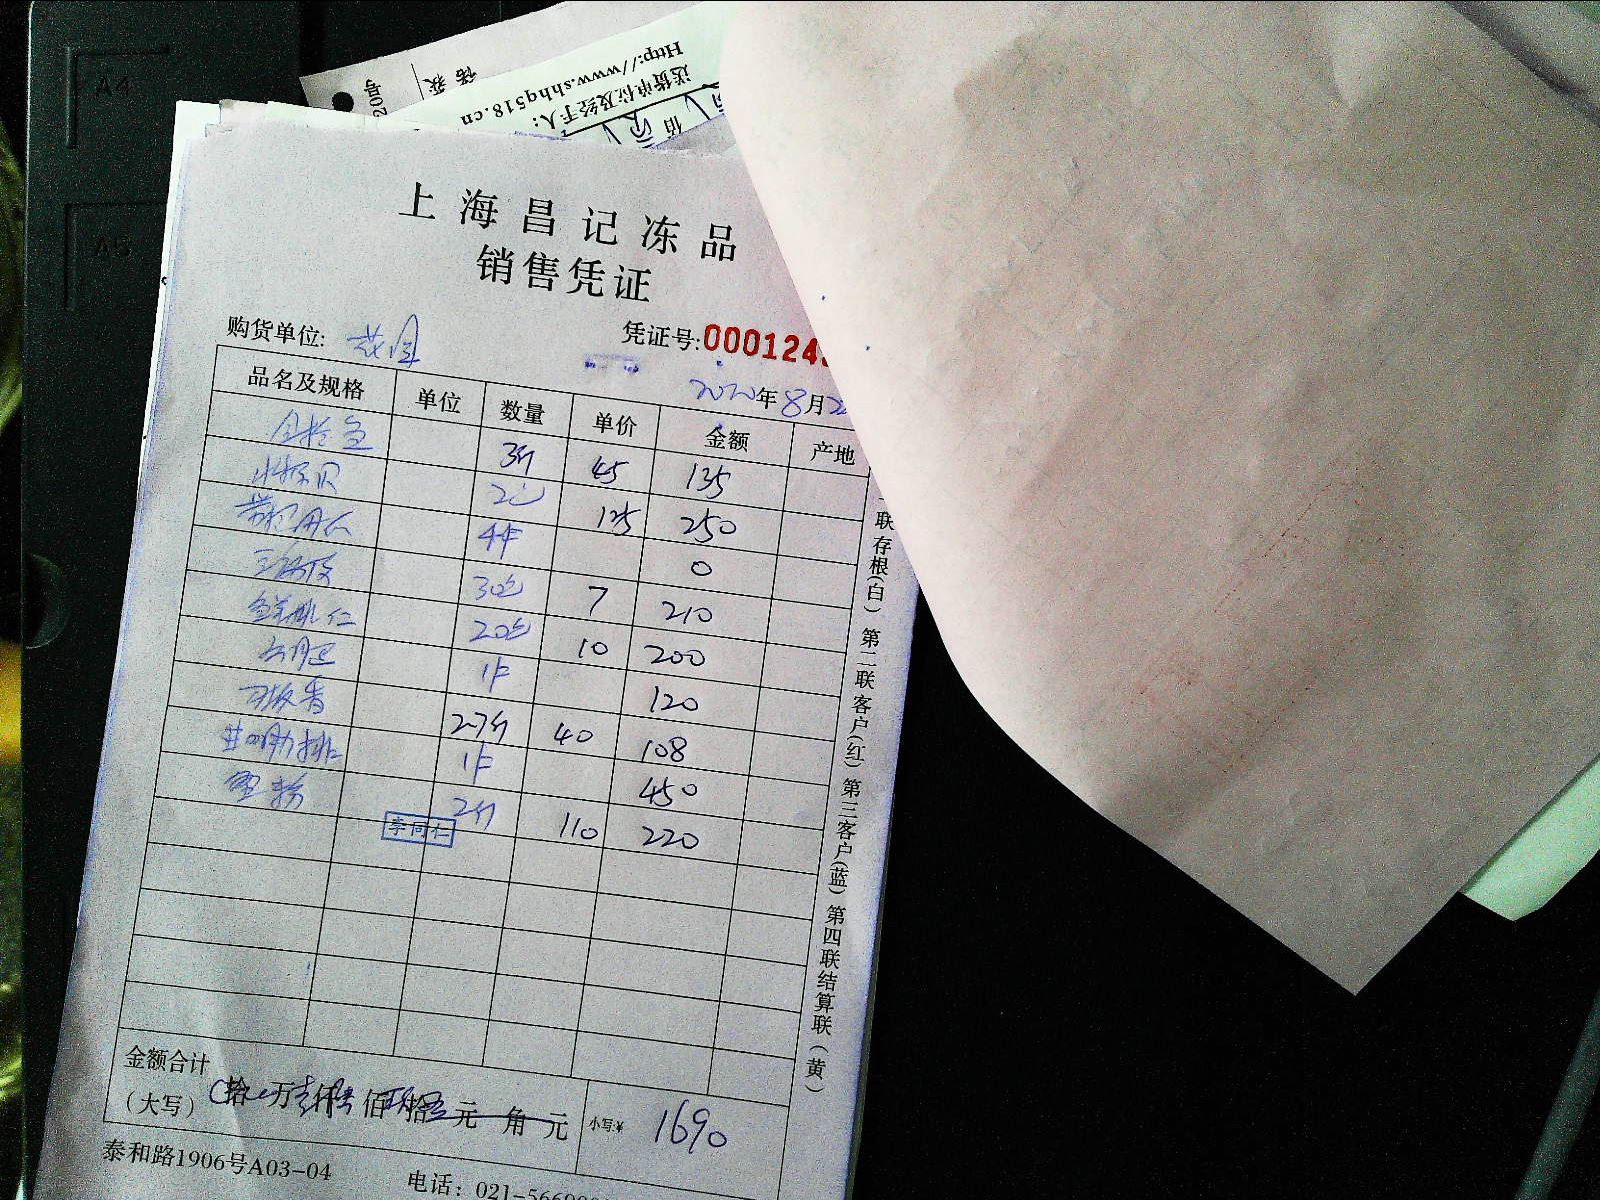 A4
A5
Http://www.shhq518.cn
送货单位及经手人:
佰
上海昌记冻品
销售凭证
购货单位:
凭证号:000124
2020年8月2
品名及规格 单位 数量 单价 金额 产地
金枪鱼 3斤 45 135
北极贝 2包 125 250
4件 0
30包 7 210
20包 10 200
1件 120
2.7斤 40 108
牛肋排 1件 450
2斤 110 220
李同仁
联存根(白) 第二联客户(红) 第三客户(蓝) 第四联结算联(黄)
金额合计
(大写) 拾 万 仟 佰 拾 元 角 元 小写:¥ 1690
泰和路1906号A03-04 电话: 021-5669